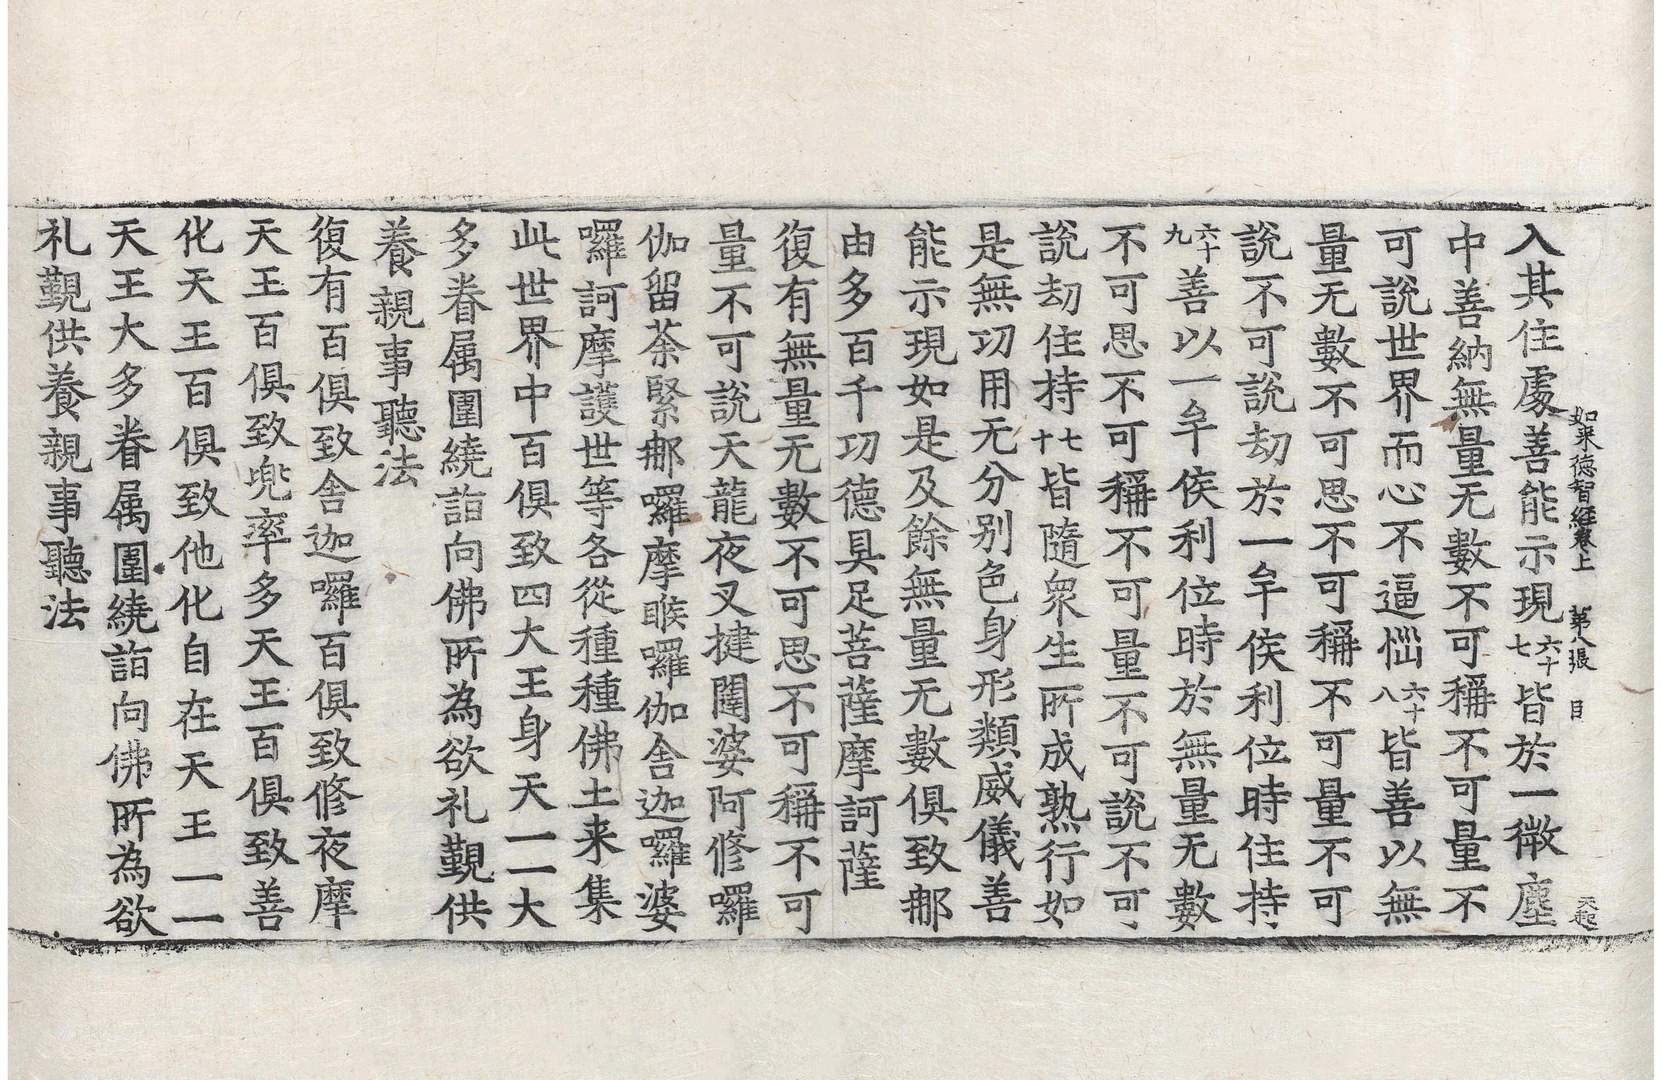 如来德智經卷上 第八張 目 天起
入其住處善能示現六十七皆於一微塵
中善納無量无數不可稱不可量不
可說世界而心不逼惱六十八皆善以無
量无數不可思不可稱不可量不可
說不可說劫於一牟侯利位時住持
六十九善以一牟侯利位時於無量无數
不可思不可稱不可量不可說不可
說劫住持七十皆隨衆生所成熟行如
是無功用无分別色身形類威儀善
能示現如是及餘無量无數俱致那
由多百千功德具足菩薩摩訶薩
復有無量无數不可思不可稱不可
量不可說天龍夜叉揵闥婆阿修囉
伽留荼緊那囉摩睺囉伽舍迦囉婆
囉訶摩護世等各從種種佛土来集
此世界中百俱致四大王身天一一大
多眷属圍繞詣向佛所為欲礼覲供
養親事聽法
復有百俱致舍迦囉百俱致修夜摩
天王百俱致兜率多天王百俱致善
化天王百俱致他化自在天王一一
天王大多眷属圍繞詣向佛所為欲
礼覲供養親事聽法